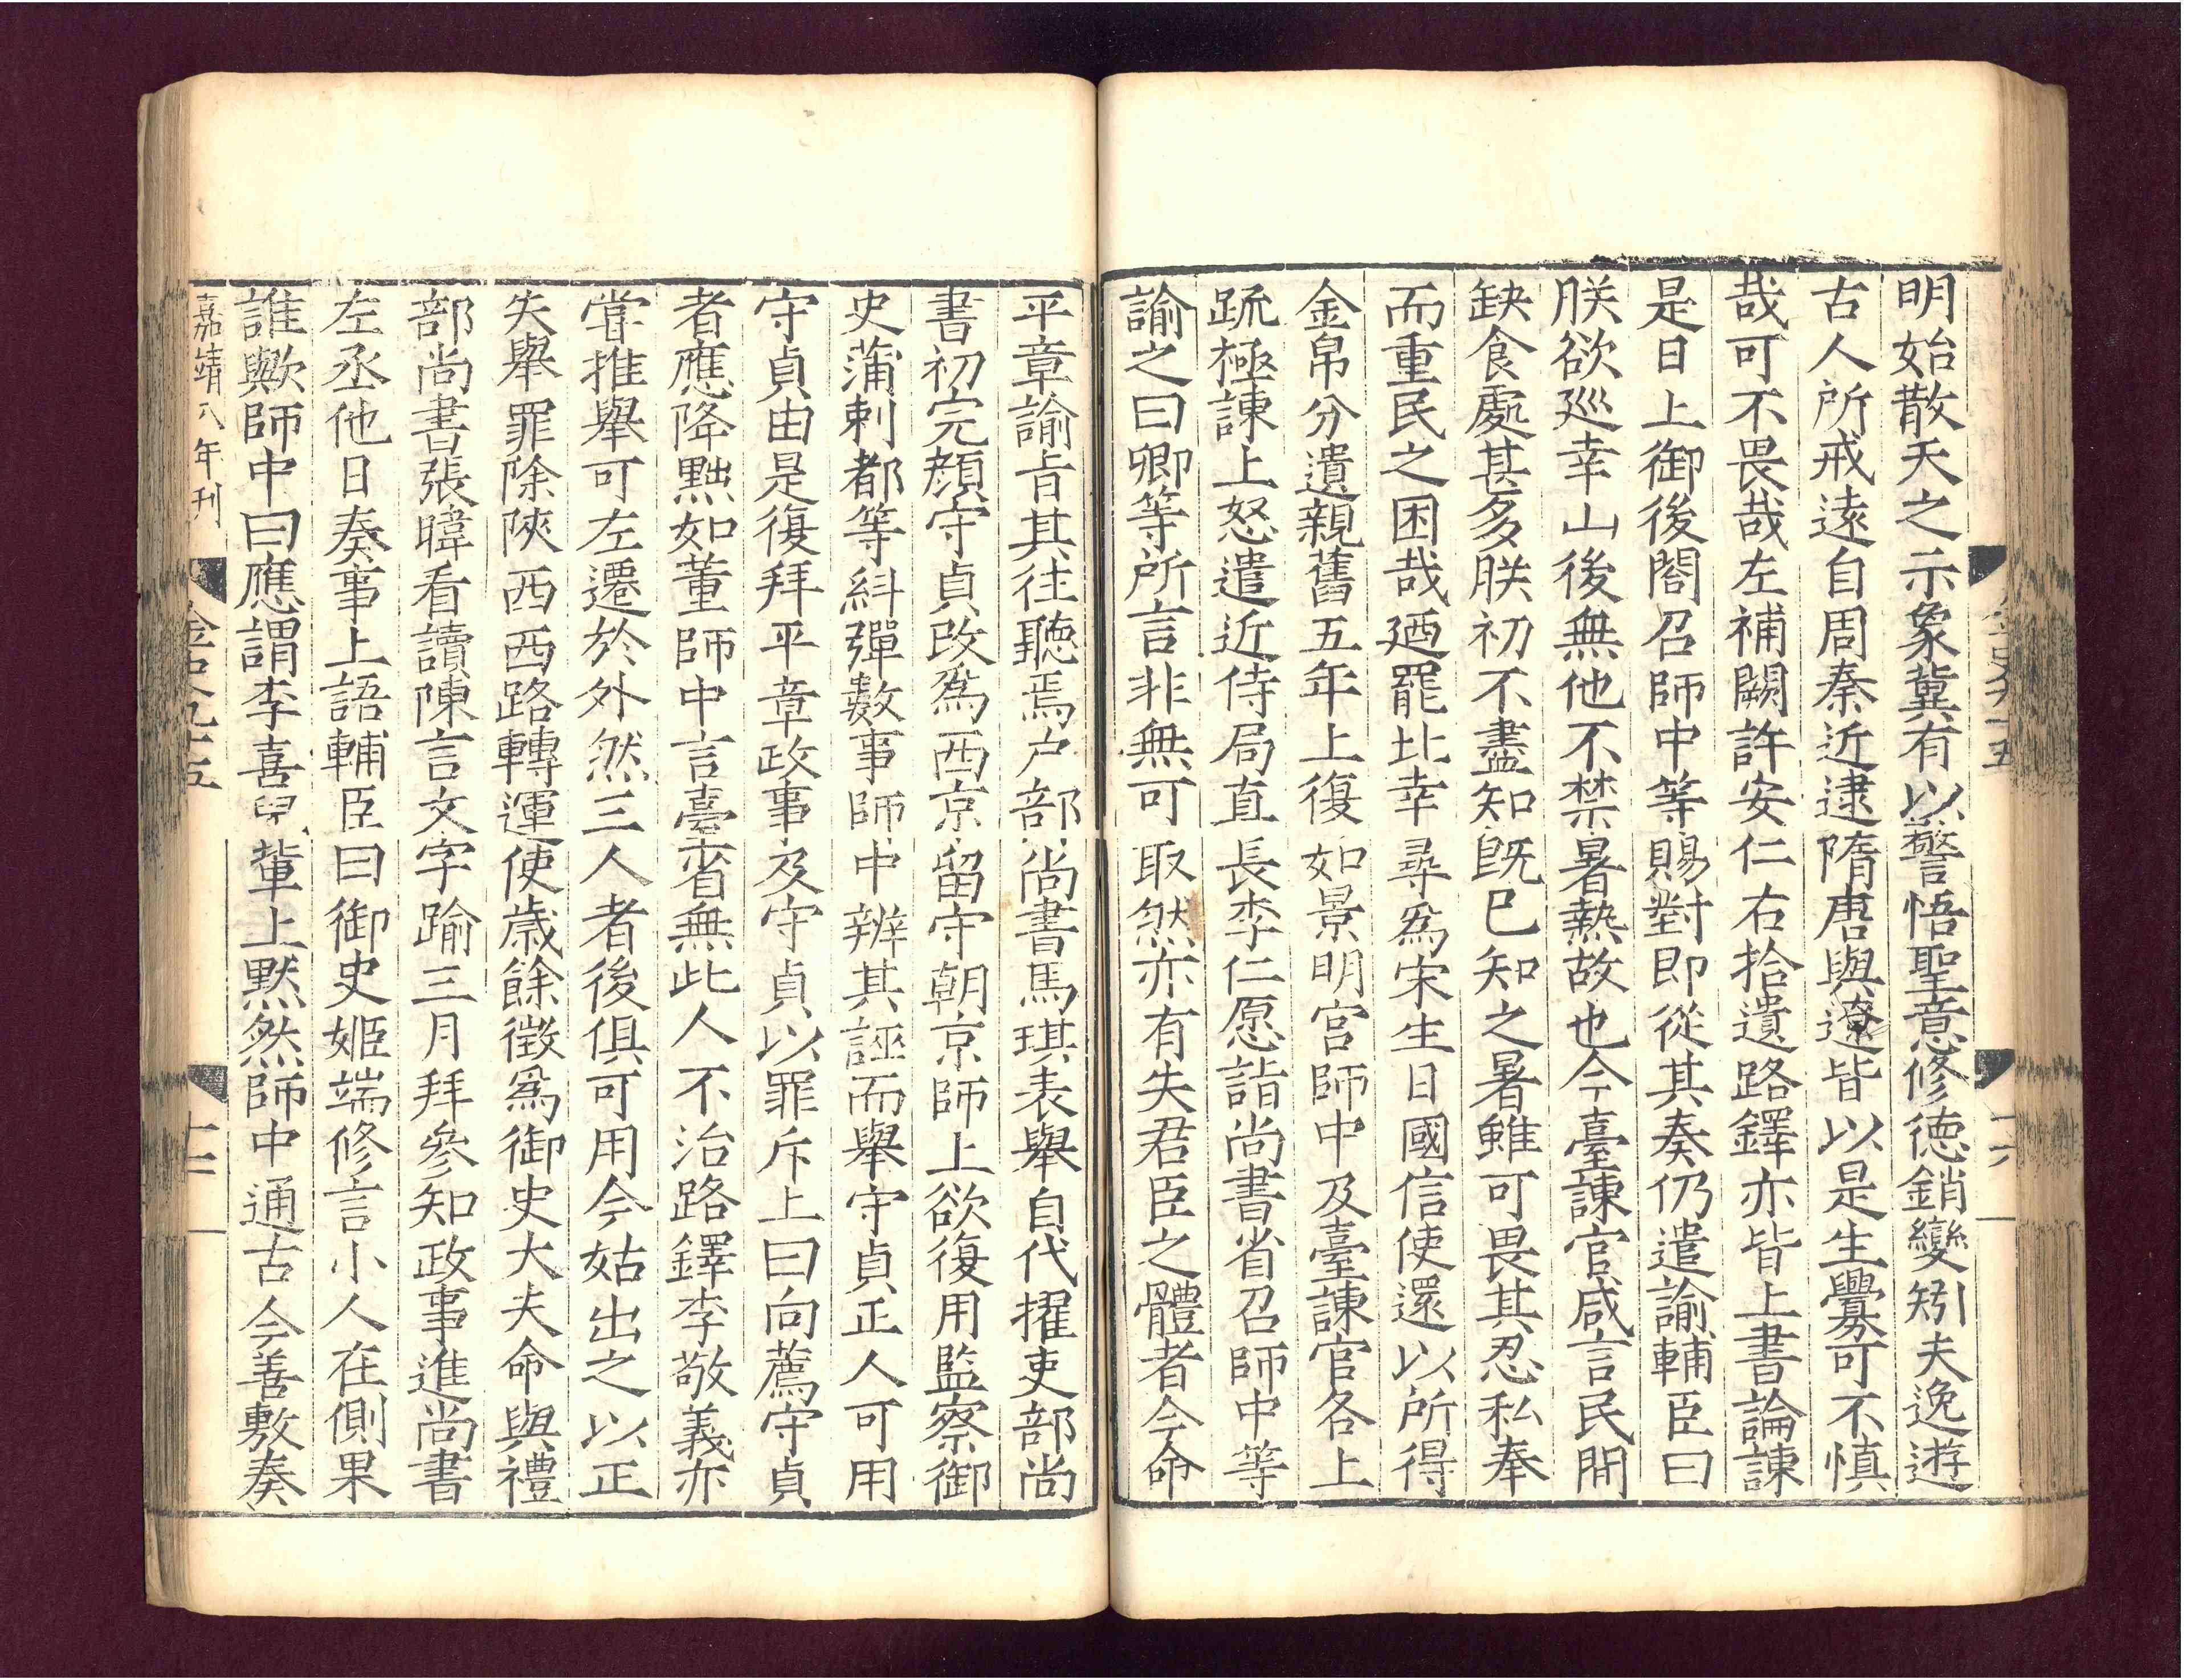 明始散天之示象冀有以警悟聖意修德銷變矧夫逸遊
古人所戒遠自周秦近逮隋唐與遼皆以是生釁可不慎
哉可不畏哉左補闕許安仁右拾遺路鐸亦皆上書論諫
是日上御後閤召師中等賜對即從其奏仍遣諭輔臣曰
朕欲廵幸山後無他不禁暑熱故也今臺諫官咸言民間
缺食處甚多朕初不盡知既已知之暑雖可畏其忍私奉
而重民之困哉廼罷北幸尋爲宋生日國信使還以所得
金帛分遺親舊五年上復如景明宮師中及臺諫官各上
䟽極諫上怒遣近侍局直長李仁愿詣尚書省召師中等
諭之曰卿等所言非無可取然亦有失君臣之體者今命
平章諭旨其往聽焉户部尚書馬琪表舉自代擢吏部尚
書初完顏守貞改爲西京留守朝京師上欲復用監察御
史蒲剌都等糾彈數事師中辨其誣而舉守貞正人可用
守貞由是復拜平章政事及守貞以罪斥上曰向薦守貞
者應降黜如董師中言臺省無此人不治路鐸李敬義亦
嘗推舉可左遷於外然三人者後俱可用今姑出之以正
失舉罪除陝西西路轉運使歳餘徵爲御史大夫命與禮
部尚書張暐看讀陳言文字踰三月拜參知政事進尚書
左丞他日奏事上語輔臣曰御史姬端修言小人在側果
誰歟師中曰應謂李喜兒輩上黙然師中通古今善敷奏
嘉靖八年刊
金史九十五
十二